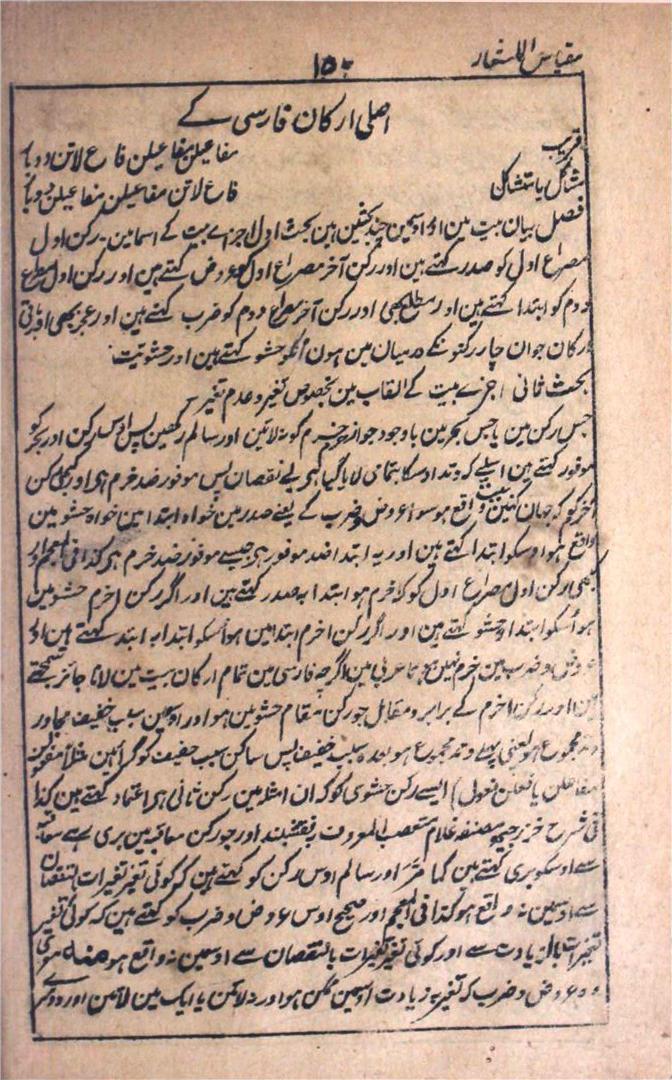 مقیاس الاشعار
۱۵۰
اصلی ارکان فارسی کے
قریب مفاعیلن مفاعیلن فاع لاتن دوبار
مشاکل یا متشاکل فاع لاتن مفاعیلن مفاعیلن دوبار
فصل بیان بیت مین اور اوسمین چند بحثین ہین بحث اول اجزاے بیت کے اسما مین ۔ رکن اول
مصراع اول کو صدر کہتے ہین اور رکن آخر مصراع اول کو عروض کہتے ہین اور رکن اول مصراع
دوم کو ابتدا کہتے ہین اور مطلع بھی اور رکن آخر مصراع دوم کو ضرب کہتے ہین اور عجز بھی اور باقی
ارکان جو ان چار رکنونکے درمیان مین ہون اونکو حشو کہتے ہین اور حشو بیت
بحث ثانی اجزاے بیت کے القاب مین بخصوص تغیر و عدم تغیر
جس رکن مین یا جس بحر مین باوجود جواز خرم کو نہ لائین اور سالم رکھین پس اوس رکن اور بحر کو
موفور کہتے ہین اسلیے کہ وتد اوسکا بتمامی لایا گیا ہی بے نقصان پس موفور ضد خرم ہی اور کبھی رکن
اخرم کو کہ جہان کہین بیت مین واقع ہو سوا عروض و ضرب کے یعنے صدر مین خواہ ابتدا مین خواہ حشو مین
واقع ہو اوسکو ابتدا کہتے ہین اور یہ ابتدا ضد موفور ہی جیسے موفور ضد خرم ہی کذا فی المعجم اور
کبھی رکن اول مصراع اول کو کہ اخرم ہو ابتدا بہ صدر کہتے ہین اور اگر رکن اخرم حشو مین
ہو اُسکو ابتدا بہ حشو کہتے ہین اور اگر رکن اخرم ابتدا مین ہو اُسکو ابتدا بہ ابتدا کہتے ہین اور
عروض و ضرب مین خرم نہین ہوتا عربی مین اگرچہ فارسی مین تمام ارکان بیت مین لانا جائز سمجھتے
ہین اور رکن اخرم کے برابر و مقابل جو رکن مقام حشو مین ہو اور اوسمین سبب خفیف مجاور
وتد مجموع ہو یعنی پہلے وتد مجموع ہو بعدہ سبب خفیف پس ساکن سبب خفیف کو گرائین مثلاً مفعولن
مفاعلن یا فعلن فعول) ایسے رکن حشوی کو کہ ان امثلہ مین رکن ثانی ہی اعتماد کہتے ہین کذا
فی شرح خزرجیہ مصنفہ غلام المعروف بہ نقشبند اور جو رکن معاقبہ مین بری ہے سقوط
سے اوسکو بری کہتے ہین کما مرّ اور سالم اوس رکن کو کہتے ہین کہ کوئی تغیر تغیرات بالنقصان
سے اوسمین نہ واقع ہو کذا فی المعجم اور صحیح اوس عروض و ضرب کو کہتے ہین کہ کوئی تغیر
تغیرات بالزیادت سے اور کوئی تغیر تغیرات بالنقصان سے اوسمین نہ واقع ہو منہ ہری
وہ عروض و ضرب کہ تغیر بہ زیادت اوسمین ممکن ہو اور نہ لائین یا ایک مین لائین اور دوسرے